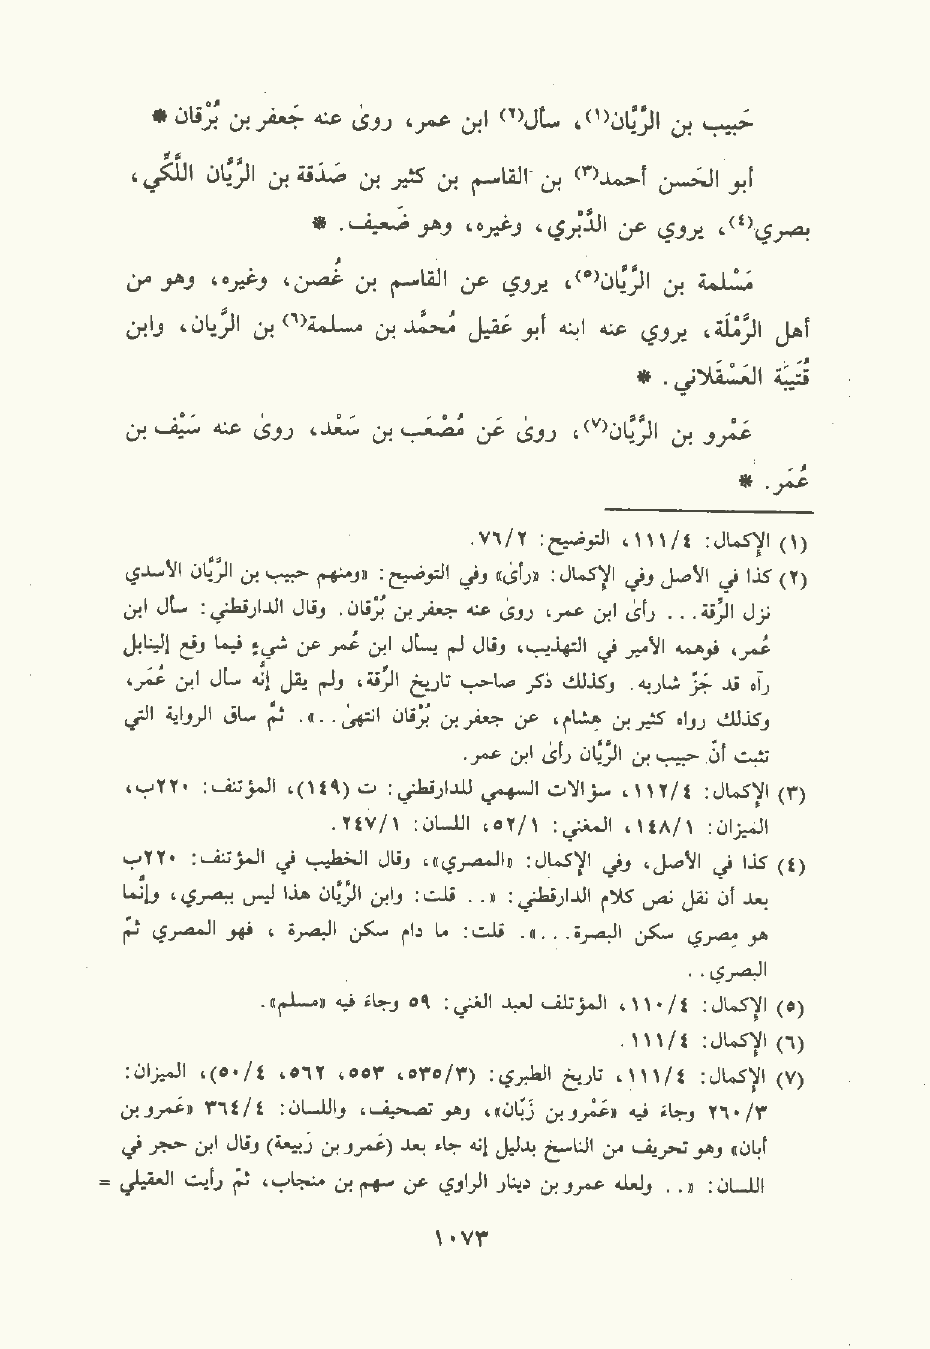 حَبيب بن الرَّيَّان(١)، سأل(٢) ابن عمر، روىٰ عنه جَعفر بن بُرْقان *
أبو الحَسن أحمد(٣) بن القاسم بن كثير بن صَدَقة بن الرَّيَّان اللُّكّي،
بصري(٤)، يروي عن الدَّبْري، وغيره، وهو ضَعيف. *
مَسْلمة بن الرَّيَّان(٥)، يروي عن القاسم بن غُصن، وغيره، وهو من
أهل الرَّمْلَة، يروي عنه ابنه أبو عَقيل مُحمَّد بن مسلمة(٦) بن الرَّيان، وابن
قُتَيبَة العَسْقَلاني. *
عَمْرو بن الرَّيَّان(٧)، روىٰ عَن مُصْعَب بن سَعْد، روىٰ عنه سَيْف بن
عُمَر. *
(١) الإكمال: ١١١/٤، التوضيح: ٧٦/٢.
(٢) كذا في الأصل وفي الإكمال: «رأىٰ» وفي التوضيح: «ومنهم حبيب بن الرَّيَّان الأسدي
نزل الرَّقة... رأىٰ ابن عمر، وروىٰ عنه جعفر بن بُرْقان. وقال الدارقطني: سأل ابن
عُمر، فوهمه الأمير في التهذيب، وقال لم يسأل ابن عُمر عن شيءٍ فيما وقع إلينابل
رآه قد جَزّ شاربه. وكذلك ذكر صاحب تاريخ الرَّقة، ولم يقل إنَّه سأل ابن عُمَر،
وكذلك رواه كثير بن هشام، عن جعفر بن بُرْقان انتهىٰ...». ثمّ ساق الرواية التي
تثبت أنّ حبيب بن الرَّيَّان رأىٰ ابن عمر.
(٣) الإكمال: ١١٢/٤، سؤالات السهمي للدارقطني: ت (١٤٩)، المؤتنف: ٢٢٠ب،
الميزان: ١٤٨/١، المغني: ٥٢/١، اللسان: ٢٤٧/١.
(٤) كذا في الأصل، وفي الإكمال: «المصري»، وقال الخطيب في المؤتنف: ٢٢٠ب
بعد أن نقل نص كلام الدارقطني: «.. قلت: وابن الرَّيَّان هذا ليس ببصري، وإنَّما
هو مِصري سكن البصرة...». قلت: ما دام سكن البصرة، فهو المصري ثمّ
البصري..
(٥) الإكمال: ١١٠/٤، المؤتلف لعبد الغني: ٥٩ وجاءَ فيه «مسلم».
(٦) الإكمال: ١١١/٤.
(٧) الإكمال: ١١١/٤، تاريخ الطبري: (٥٣٥/٣، ٥٥٣، ٥٦٢، ٥٠/٤)، الميزان:
٢٦٠/٣ وجاءَ فيه «عَمْرو بن زَبَّان»، وهو تصحيف، واللسان: ٣٦٤/٤ «عَمرو بن
أبان» وهو تحريف من الناسخ بدليل إنه جاء بعد (عَمرو بن زَبيعة) وقال ابن حجر في
اللسان: «.. ولعله عمرو بن دينار الراوي عن سهم بن منجاب، ثمّ رأيت العقيلي =
١٠٧٣